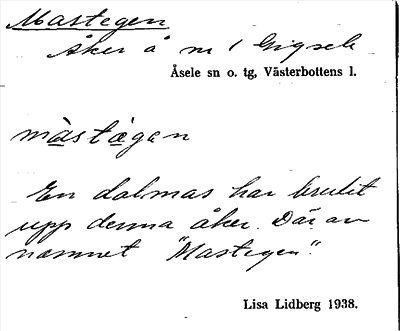 Mastegen
Åker å nr 1 Gigsele
Åsele sn o. tg, Västerbottens l.
màstègen
En dalmas har brutit
upp denna åker. Därav
namnet "Mastegen".
Lisa Lidberg 1938.